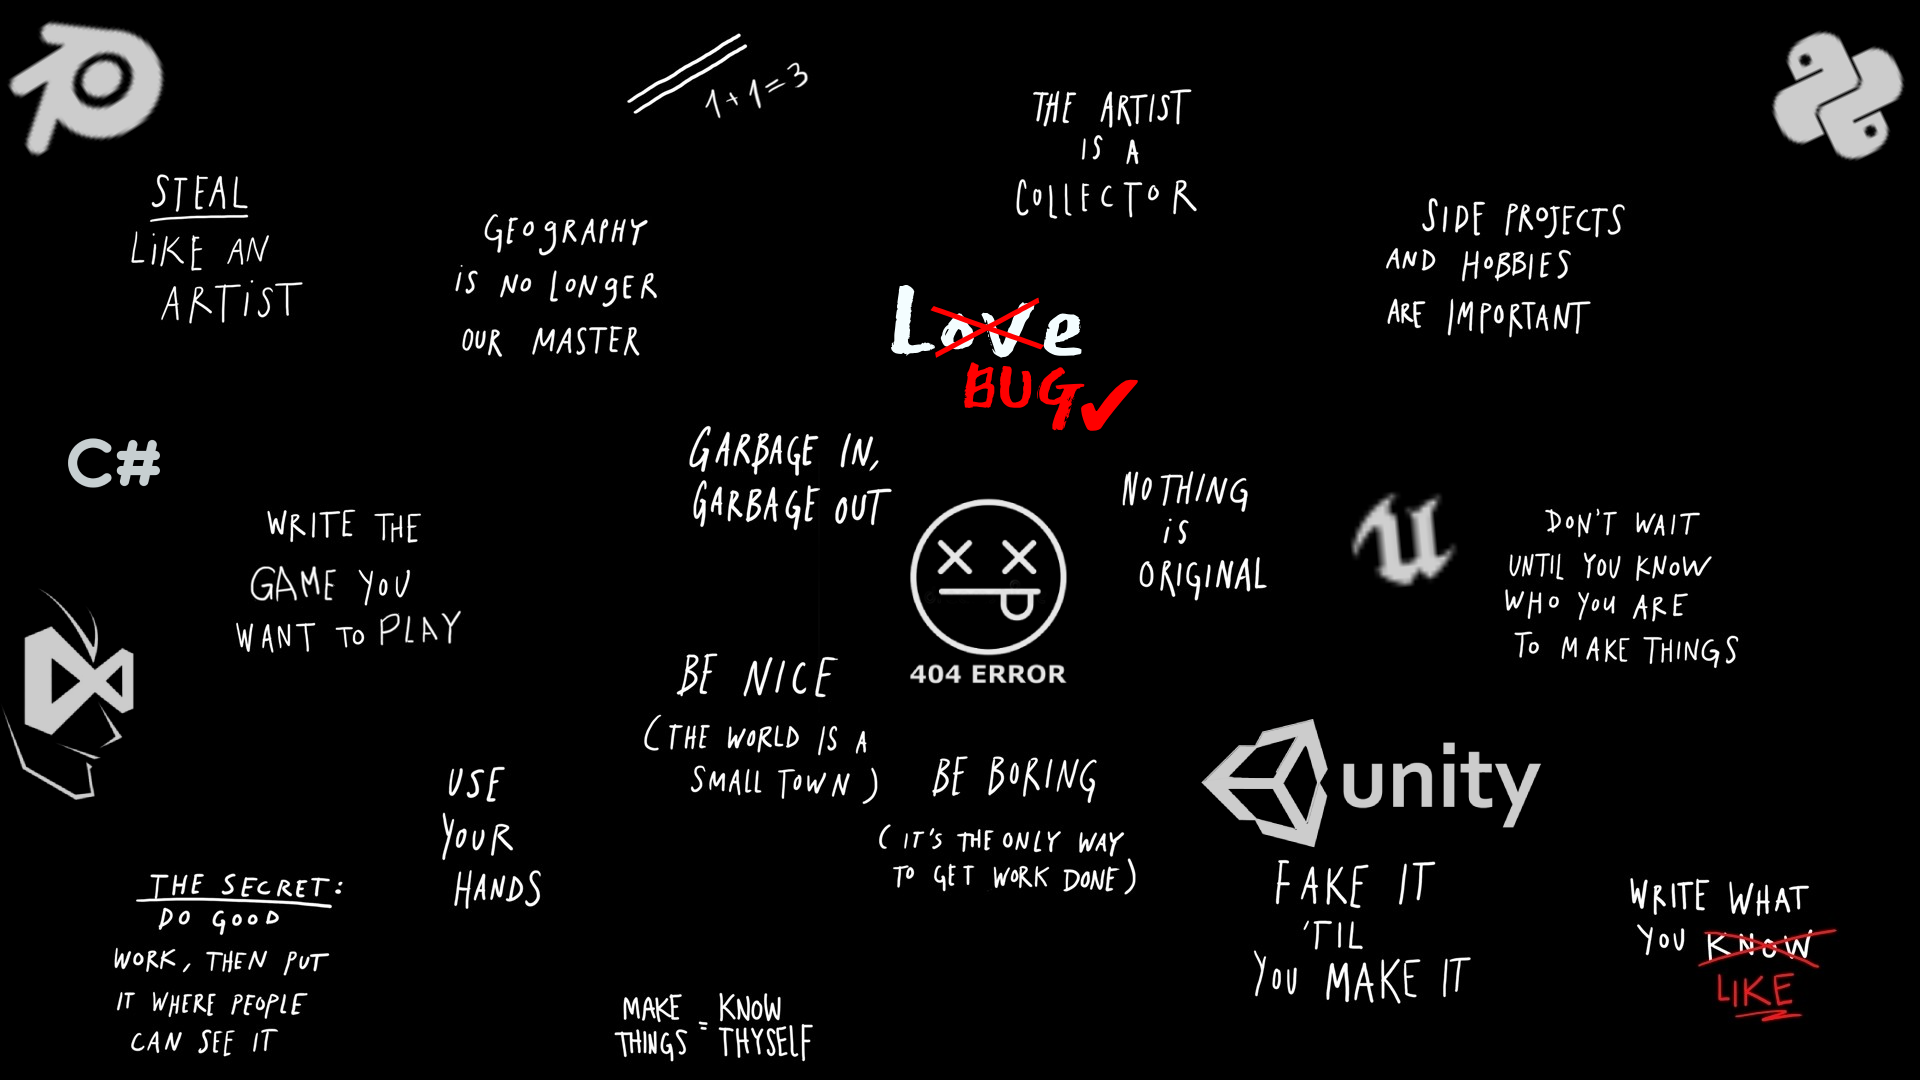 1+1=3
THE ARTIST
IS A
COLLECTOR
STEAL
LIKE AN
ARTIST
GEOGRAPHY
IS NO LONGER
OUR MASTER
SIDE PROJECTS
AND HOBBIES
ARE IMPORTANT
Love
BUG
C#
GARBAGE IN,
GARBAGE OUT
NOTHING
IS
ORIGINAL
WRITE THE
GAME YOU
WANT TO PLAY
DON'T WAIT
UNTIL YOU KNOW
WHO YOU ARE
TO MAKE THINGS
404 ERROR
BE NICE
(THE WORLD IS A
SMALL TOWN)
USE
YOUR
HANDS
BE BORING
(IT'S THE ONLY WAY
TO GET WORK DONE)
unity
THE SECRET:
DO GOOD
WORK, THEN PUT
IT WHERE PEOPLE
CAN SEE IT
FAKE IT
'TIL
YOU MAKE IT
WRITE WHAT
YOU KNOW
LIKE
MAKE THINGS = KNOW THYSELF